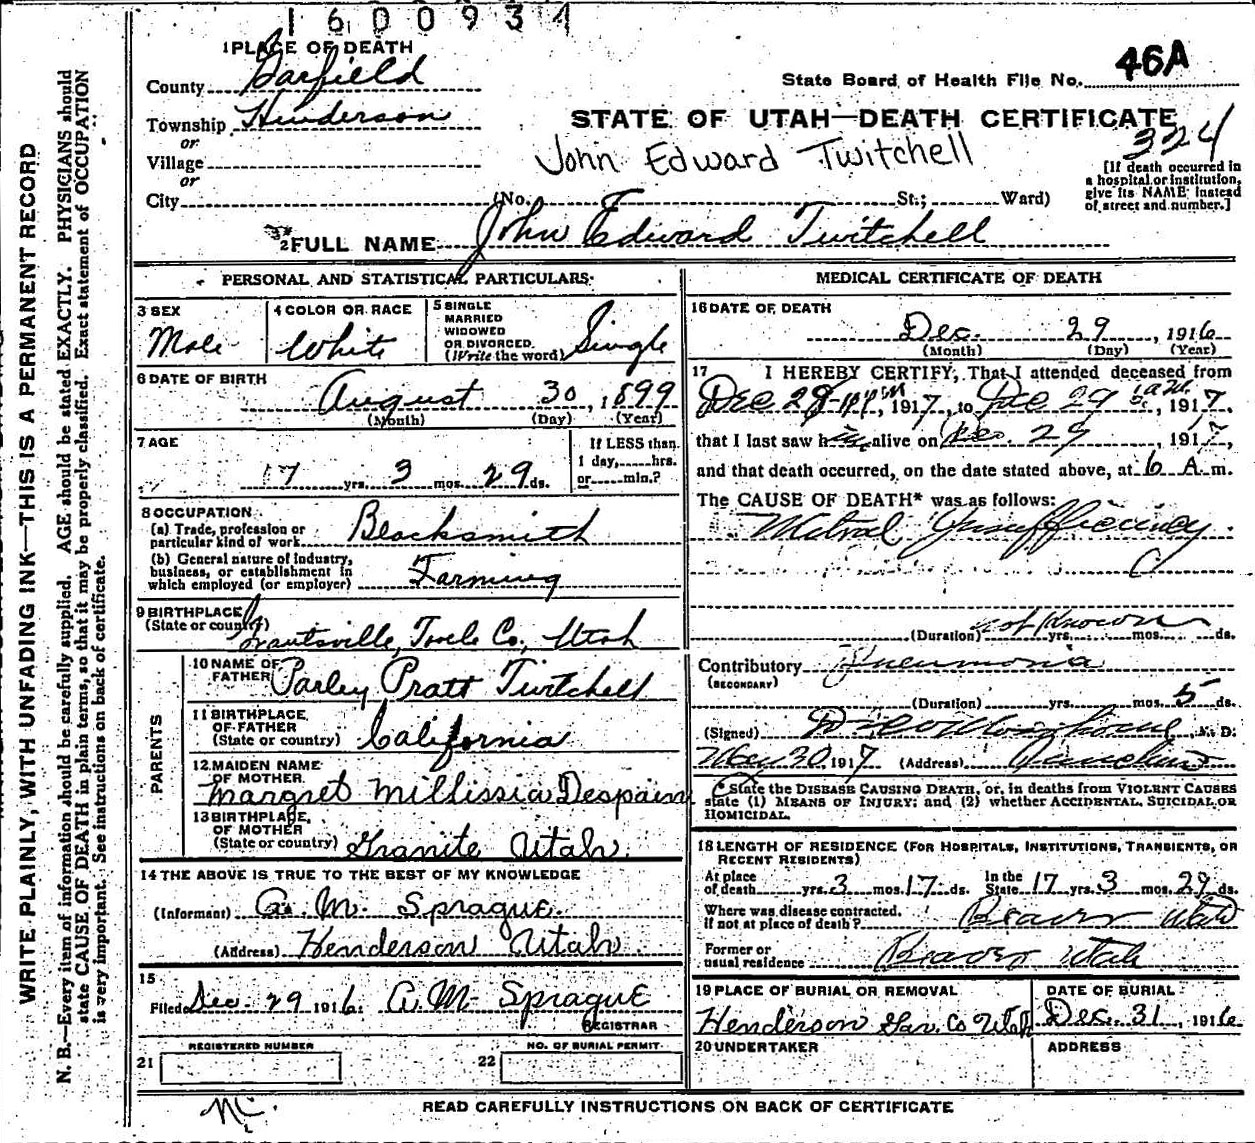 1600934
1 PLACE OF DEATH
County Garfield
46A
State Board of Health File No.
Township Henderson
STATE OF UTAH—DEATH CERTIFICATE
324
or
Village
John Edward Twitchell
or
[If death occurred in
a hospital or institution,
give its NAME instead
of street and number.]
City (No. St.; Ward)
2 FULL NAME John Edward Twitchell
PERSONAL AND STATISTICAL PARTICULARS
3 SEX
Male
4 COLOR OR RACE
White
5 SINGLE
MARRIED
WIDOWED
OR DIVORCED.
(Write the word) Single
6 DATE OF BIRTH
August 30, 1899
(Month) (Day) (Year)
7 AGE
17 yrs. 3 mos. 29 ds.
If LESS than
1 day, hrs.
or min.?
8 OCCUPATION
(a) Trade, profession or
particular kind of work Blacksmith
(b) General nature of industry,
business, or establishment in
which employed (or employer) Farming
9 BIRTHPLACE
(State or county)
Grantsville, Tooele Co., Utah
PARENTS
10 NAME OF
FATHER Parley Pratt Twitchell
11 BIRTHPLACE
OF FATHER
(State or country) California
12 MAIDEN NAME
OF MOTHER
Margret Millissia Despain
13 BIRTHPLACE
OF MOTHER
(State or country) Granite Utah.
14 THE ABOVE IS TRUE TO THE BEST OF MY KNOWLEDGE
(Informant) A. M. Sprague.
(Address) Henderson Utah
15
Filed Dec. 29 1916. A. M. Sprague
REGISTRAR
21 REGISTERED NUMBER
22 NO. OF BURIAL PERMIT
MEDICAL CERTIFICATE OF DEATH
16 DATE OF DEATH
Dec. 29, 1916
(Month) (Day) (Year)
17 I HEREBY CERTIFY, That I attended deceased from
Dec 28 , 1917, to Dec 29 , 1917.
that I last saw him alive on Dec. 29 , 191
and that death occurred, on the date stated above, at 6 A m.
The CAUSE OF DEATH* was as follows:
Mitral Insufficiency
(Duration) not known yrs. mos. ds.
Contributory Pneumonia
(SECONDARY)
(Duration) yrs. mos. 5 ds.
(Signed) M. D.
30 1917 (Address)
State the DISEASE CAUSING DEATH, or, in deaths from VIOLENT CAUSES
state (1) MEANS OF INJURY; and (2) whether ACCIDENTAL, SUICIDAL OR
HOMICIDAL.
18 LENGTH OF RESIDENCE (FOR HOSPITALS, INSTITUTIONS, TRANSIENTS, OR
RECENT RESIDENTS)
At place
of death yrs. 3 mos. 17 ds.
In the
State 17 yrs. 3 mos. 29 ds.
Where was disease contracted.
If not at place of death? Beaver Utah
Former or
usual residence Beaver Utah
19 PLACE OF BURIAL OR REMOVAL
Henderson Gar. Co Utah
DATE OF BURIAL
Dec. 31, 1916
20 UNDERTAKER
ADDRESS
READ CAREFULLY INSTRUCTIONS ON BACK OF CERTIFICATE
WRITE PLAINLY, WITH UNFADING INK—THIS IS A PERMANENT RECORD
N. B.—Every item of information should be carefully supplied. AGE should be stated EXACTLY. PHYSICIANS should
state CAUSE OF DEATH in plain terms, so that it may be properly classified. Exact statement of OCCUPATION
is very important. See instructions on back of certificate.